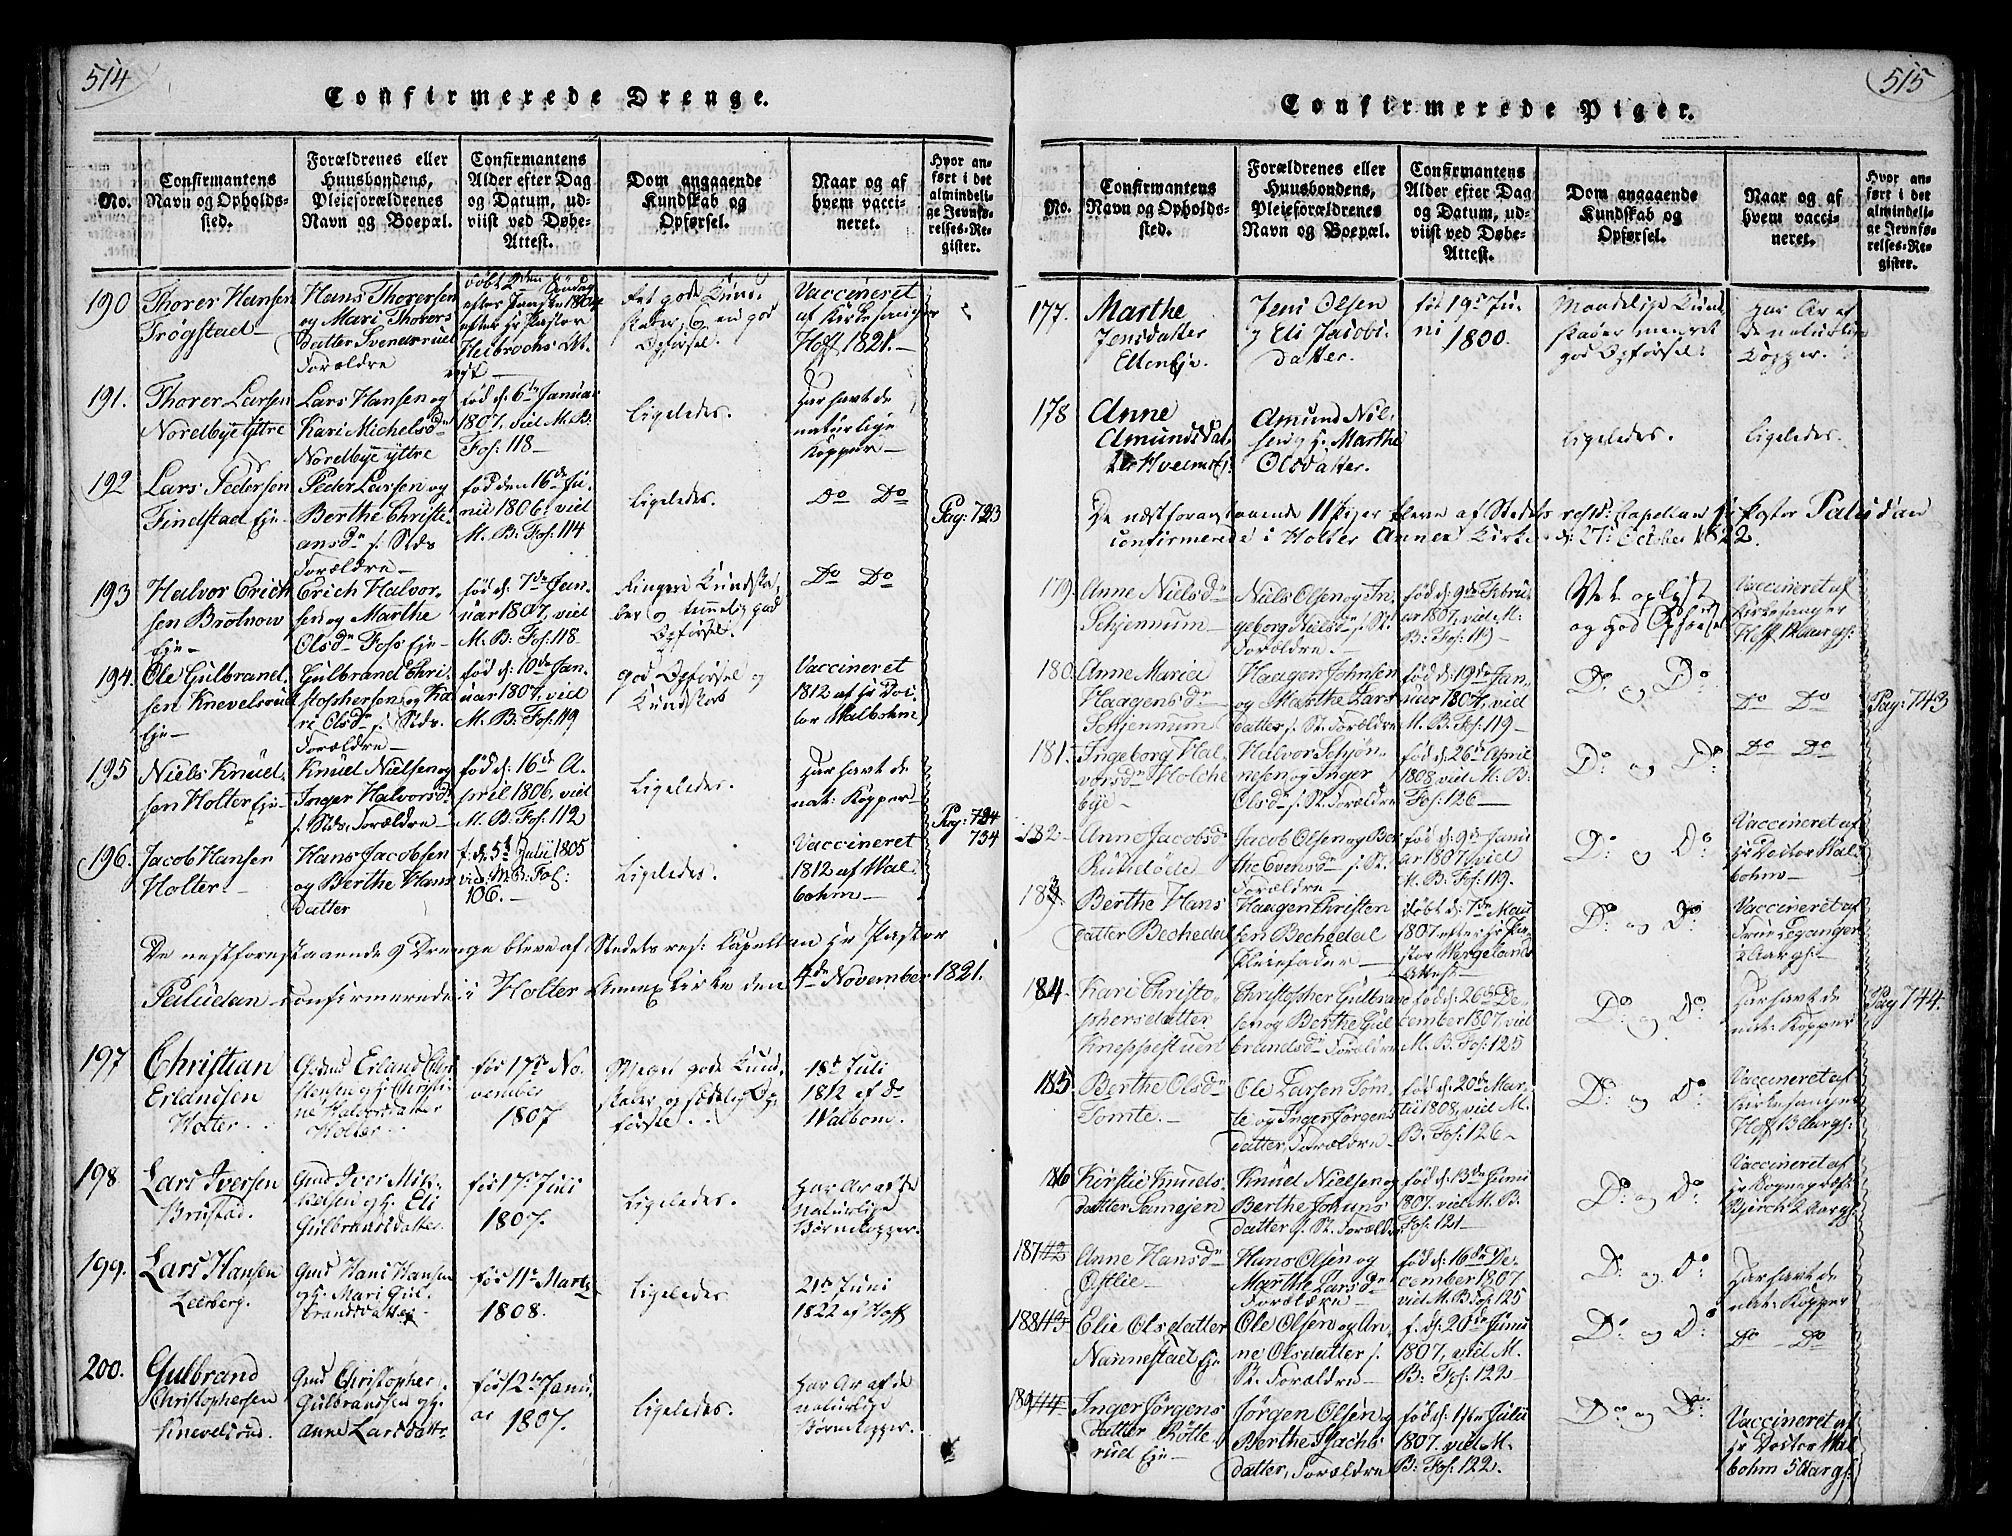 514
Confirmerede Drenge.
No.
Confirmantens
Navn og Opholds-
sted.
Forældrenes eller
Huusbondens,
Pleieforældrenes
Navn og Boepæl.
Confirmantens
Alder efter Dag
og Datum, ud-
viist ved Døbe-
Attest.
Dom angaaende
Kundskab og
Opførsel.
Naar og af
hvem vacci-
neret.
Hvor an-
ført i det
almindeli-
ge Jevnfø-
relses-Re-
gister.
190
Thorer Hansen
Trogstad
Hans Thorersen
og Mari Thorers
Datter Svendsrud
Forældre
døbt 2den Søndag
efter Paaske 1804
efter Hr Pastor
Heibrochs At-
test
Ret gode Kund-
skaber og en god
Opførsel.
Vaccineret
af Kirkesanger
Hoff 1821.
191.
Thorer Larsen
Nordbye Yttre
Lars Hansen og
Kari Michelsdr
Nordbye yttre
fød d: 6te Januar
1807, vid M. B.
Fol: 118
Ligeledes.
Har havt de
naturlige
Kopper
192
Lars Pedersen
Findstad Eje
Peder Larsen og
Berthe Christi-
ansdr s: Stds
Forældre
fød den 16de Ju-
nii 1806, vid
M. B: Fol: 114
Ligeledes.
Do Do
Pag: 723
193
Halvor Erich
sen Brotnow
Eje
Erich Halvor-
sen og Marthe
Olsdr Foss Eje
fød d: 7de Jan-
uar 1807, vid
M. B: Fol: 118
Ringere Kundska-
ber og temmelig god
Opførsel.
Do Do
194.
Ole Gulbrand-
sen Knevelsrud
Eje
Gulbrand Chri-
stophersen og Ka-
ri Olsdr s: Stds.
Forældre
fød d: 10de Jan-
uar 1807, vid
M. B: Fol: 119
god Opførsel og
Kundskab
Vaccineret
1812 af Hr Doc-
tor Walbohm
195
Niels Knud-
sen Holter Eje
Knud Nielsen og
Inger Halvorsdr
s: Stds. Forældre
fød d: 16de A-
pril 1806, vid
M. B: Fol: 112
Ligeledes.
Har havt de
nat: Kopper
Pag: 724
734
196.
Jacob Hansen
Holter
Hans Jacobsen
og Berthe Hans
Datter
f: d: 5te Julii 1805
vid M. B: Fol:
106.
Ligeledes.
Vaccineret
1812 af Wal-
bohm
De nestforestaaende 9 Drenge bleve af Stedets res: Kapellan Hr Pastor
Paludan confirmerede i Holter Annex Kirke den 4de November 1821.
197
Christian
Erlandsen
Holter
Gmd Erland Chri-
stensen og H: Christi-
ne Halvorsdatter
Holter
fød 17de No-
vember
1807
Megen gode Kund-
skaber og sædelig Op-
førsel
18de Juli
1812 af Dr
Walbom.
198
Lars Iversen
Brustad.
Gmd Iver Mik-
kelsen og H: Eli
Gulbrandsdatter.
fød 17de Juli
1807.
Ligeledes.
Har havt de
naturlige
Børnekopper.
199.
Lars Hansen
Leerberg.
Gmd Hans Hansen
og H. Mari Gul-
brandsdatter
fød 11te Marts
1808.
Ligeledes
21de Juni
1822 af Hoff
200.
Gulbrand
Christophersen
Knevelsrud.
Gmd Christopher
Gulbrandsen og H:
Anne Larsdatter
fød 12te Janu-
ar 1807.
Ligeledes.
Har havt de
naturlige
Børnekopper.
515
Confirmerede Piger.
No.
Confirmantens
Navn og Opholds-
sted.
Forældrenes eller
Huusbondens,
Pleieforældrenes
Navn og Boepæl.
Confirmantens
Alder efter Dag
og Datum, ud-
viist ved Døbe-
Attest.
Dom angaaende
Kundskab og
Opførsel.
Naar og af
hvem vacci-
neret.
Hvor an-
ført i det
almindeli-
ge Jevnfø-
relses-Re-
gister.
177.
Marthe
Jensdatter
Ellen Eje.
Jens Olsen
og Eli Jacobs-
datter.
fød 19de Ju-
ni 1800.
Maadelige Kund-
skaber meget
god Opførsel.
Har havt
de naturlige
Kopper.
178
Anne
Amundsdat-
ter Hvem
Amund Niel-
sen og H. Marthe
Olsdatter.
Ligeledes.
Ligeledes.
De næstforanstaaende 11 Piger bleve af Stedets resid: Capellan Hr Pastor Paludan
confirmerede i Holter Annex Kirke d: 27de October 1822.
179
Anne Nielsdr
Schjennum
Niels Olsen og In-
geborg Nielsdr s: St.
Forældre.
fød d: 9de Febru-
ar 1807, vid M.
B: Fol: 119
Vel oplyst
og god Opførsel
Vaccineret af
Kirkesanger
Hoff
180.
Anne Maria
Haagensdr
Schjennum
Haagen Johnsen
og Marthe Lars
Datter s: St. Forældre
fød d: 19de Jan-
uar 1807, vid
M. B: Fol: 119
Do og Do
Do Do
Pag: 743
181.
Ingeborg Hal-
vorsdr Holche
Eje
Halvor Schjøn-
nesen og Inger
Olsdr s: St. Forældre
fød d: 26de April
1808 vid M. B.
Fol: 126
Do og Do
Do Do
182.
Anne Jacobsdr
Rudsløde
Jacob Olsen og Ber-
the Evensdr s: St.
Forældre
fød d: 9de Janu-
ar 1807, vid
M. B: Fol: 119.
Do og Do
Vaccineret af
Hr Doctor Wal-
bohm
183.
Berthe Hans
datter Bechedal
Haagen Christen
sen Bechedal
Pleiefader
døbt d: 7de Maii
1807 efter Hr Pa-
stor Wergelands
Attest
Do og Do
Vaccineret af
184.
Kari Christo-
phersdatter
Kneppestuen
Christopher Gulbrand
sen og Berthe Gul-
brandsdr Forældre
fød d: 26de De-
cember 1807, vid
M. B. Fol: 125
Do og Do
Har havt de
nat: Kopper
Pag 744.
185
Berthe Olsdr
Tomte.
Ole Larsen Tom-
te og Inger Jørgens
datter, Forældre
fød d: 20de Mar-
tii 1808, vid M.
B: Fol: 126
Do og Do
Vaccineret af
Kirkesanger
Hoff 13 Aar gl:
186
Kirstie Knuds-
datter Lamejen
Knud Nielsen og
Berthe Johans
datter s. St. Forældre
fød d: 13de Junii
1807. vid M. B.
Fol: 121
Do og Do
Vaccineret af
Hr Sognepræst
Bjerch 2 Aar gl:
187
Anne Hansdr
Østlie
Hans Olsen og
Marthe Larsdr
Forældre
fød d: 16de De-
cember 1807
vid M. B. Fol: 125
Do og Do
Har havt de
nat: Kopper
188
Elie Olsdatter
Nannestad Eje
Ole Olsen og An-
ne Olsdatter s.
St. Forældre
f. d: 20de Junii
1807, vid M.
B: Fol: 122
Do og Do
Do Do
189
Inger Jørgens
datter Rotte-
rud Eje
Jørgen Olsen og
Berthe Isachs
datter, Forældre
fød d: 17de Julii
1807. vid M.
B: Fol: 122.
Do og Do
Vaccineret af
Hr Doctor Wal-
bohm 5 Aar gl: